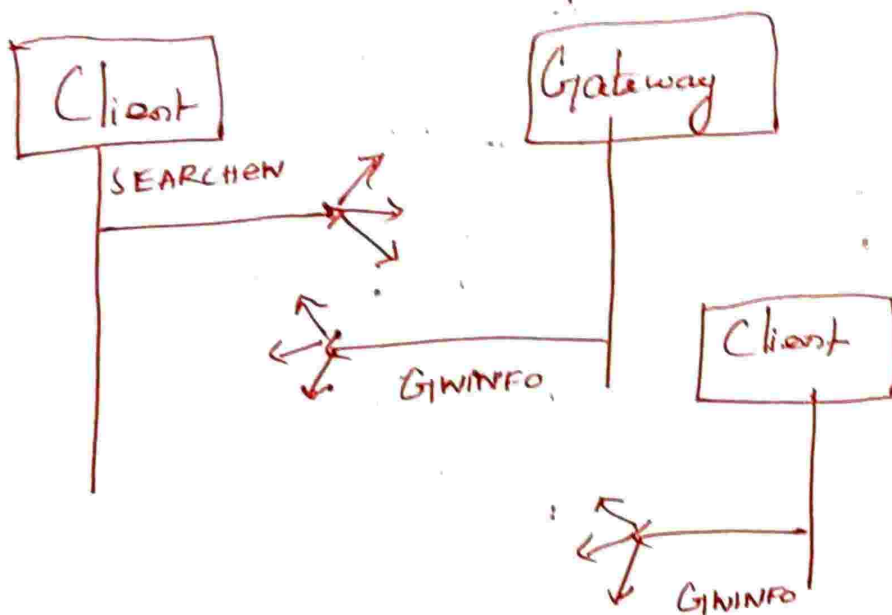 Client
Gateway
SEARCHGW
GWINFO
Client
GWINFO